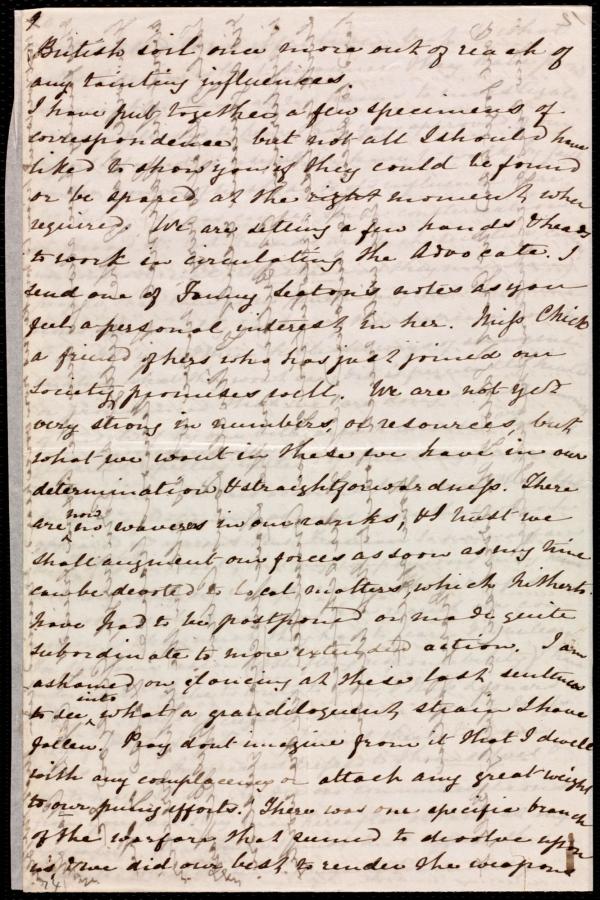 9
British soil once more out of reach of
any tainting influences.
I have put together a few specimens of
correspondence, but not all I should have
liked to show you if they could be found
or be spared at the right moment when
required. We are setting a few hands & heads
to work in circulating the Advocate. I
send one of Fanny Seaton's notes as you
feel a personal interest in her. Miss Chick
a friend of hers who has just joined our
Society promises well. We are not yet
very strong in numbers, or resources, but
what we want in these we have in our
determination & straightforwardness. There
are now no waverers in our ranks, & I trust we
shall augment our forces as soon as my time
can be devoted to local matters which hitherto
have had to be postponed or made quite
subordinate to more extended action. I am
ashamed on glancing at these last sentences
to see into what a grandiloquent strain I have
fallen. Pray dont imagine from it that I dwell
with any complacency or attach any great weight
to our puny efforts. There was one specific branch
of the warfare that seemed to devolve upon
us & we did our best to render the weapons